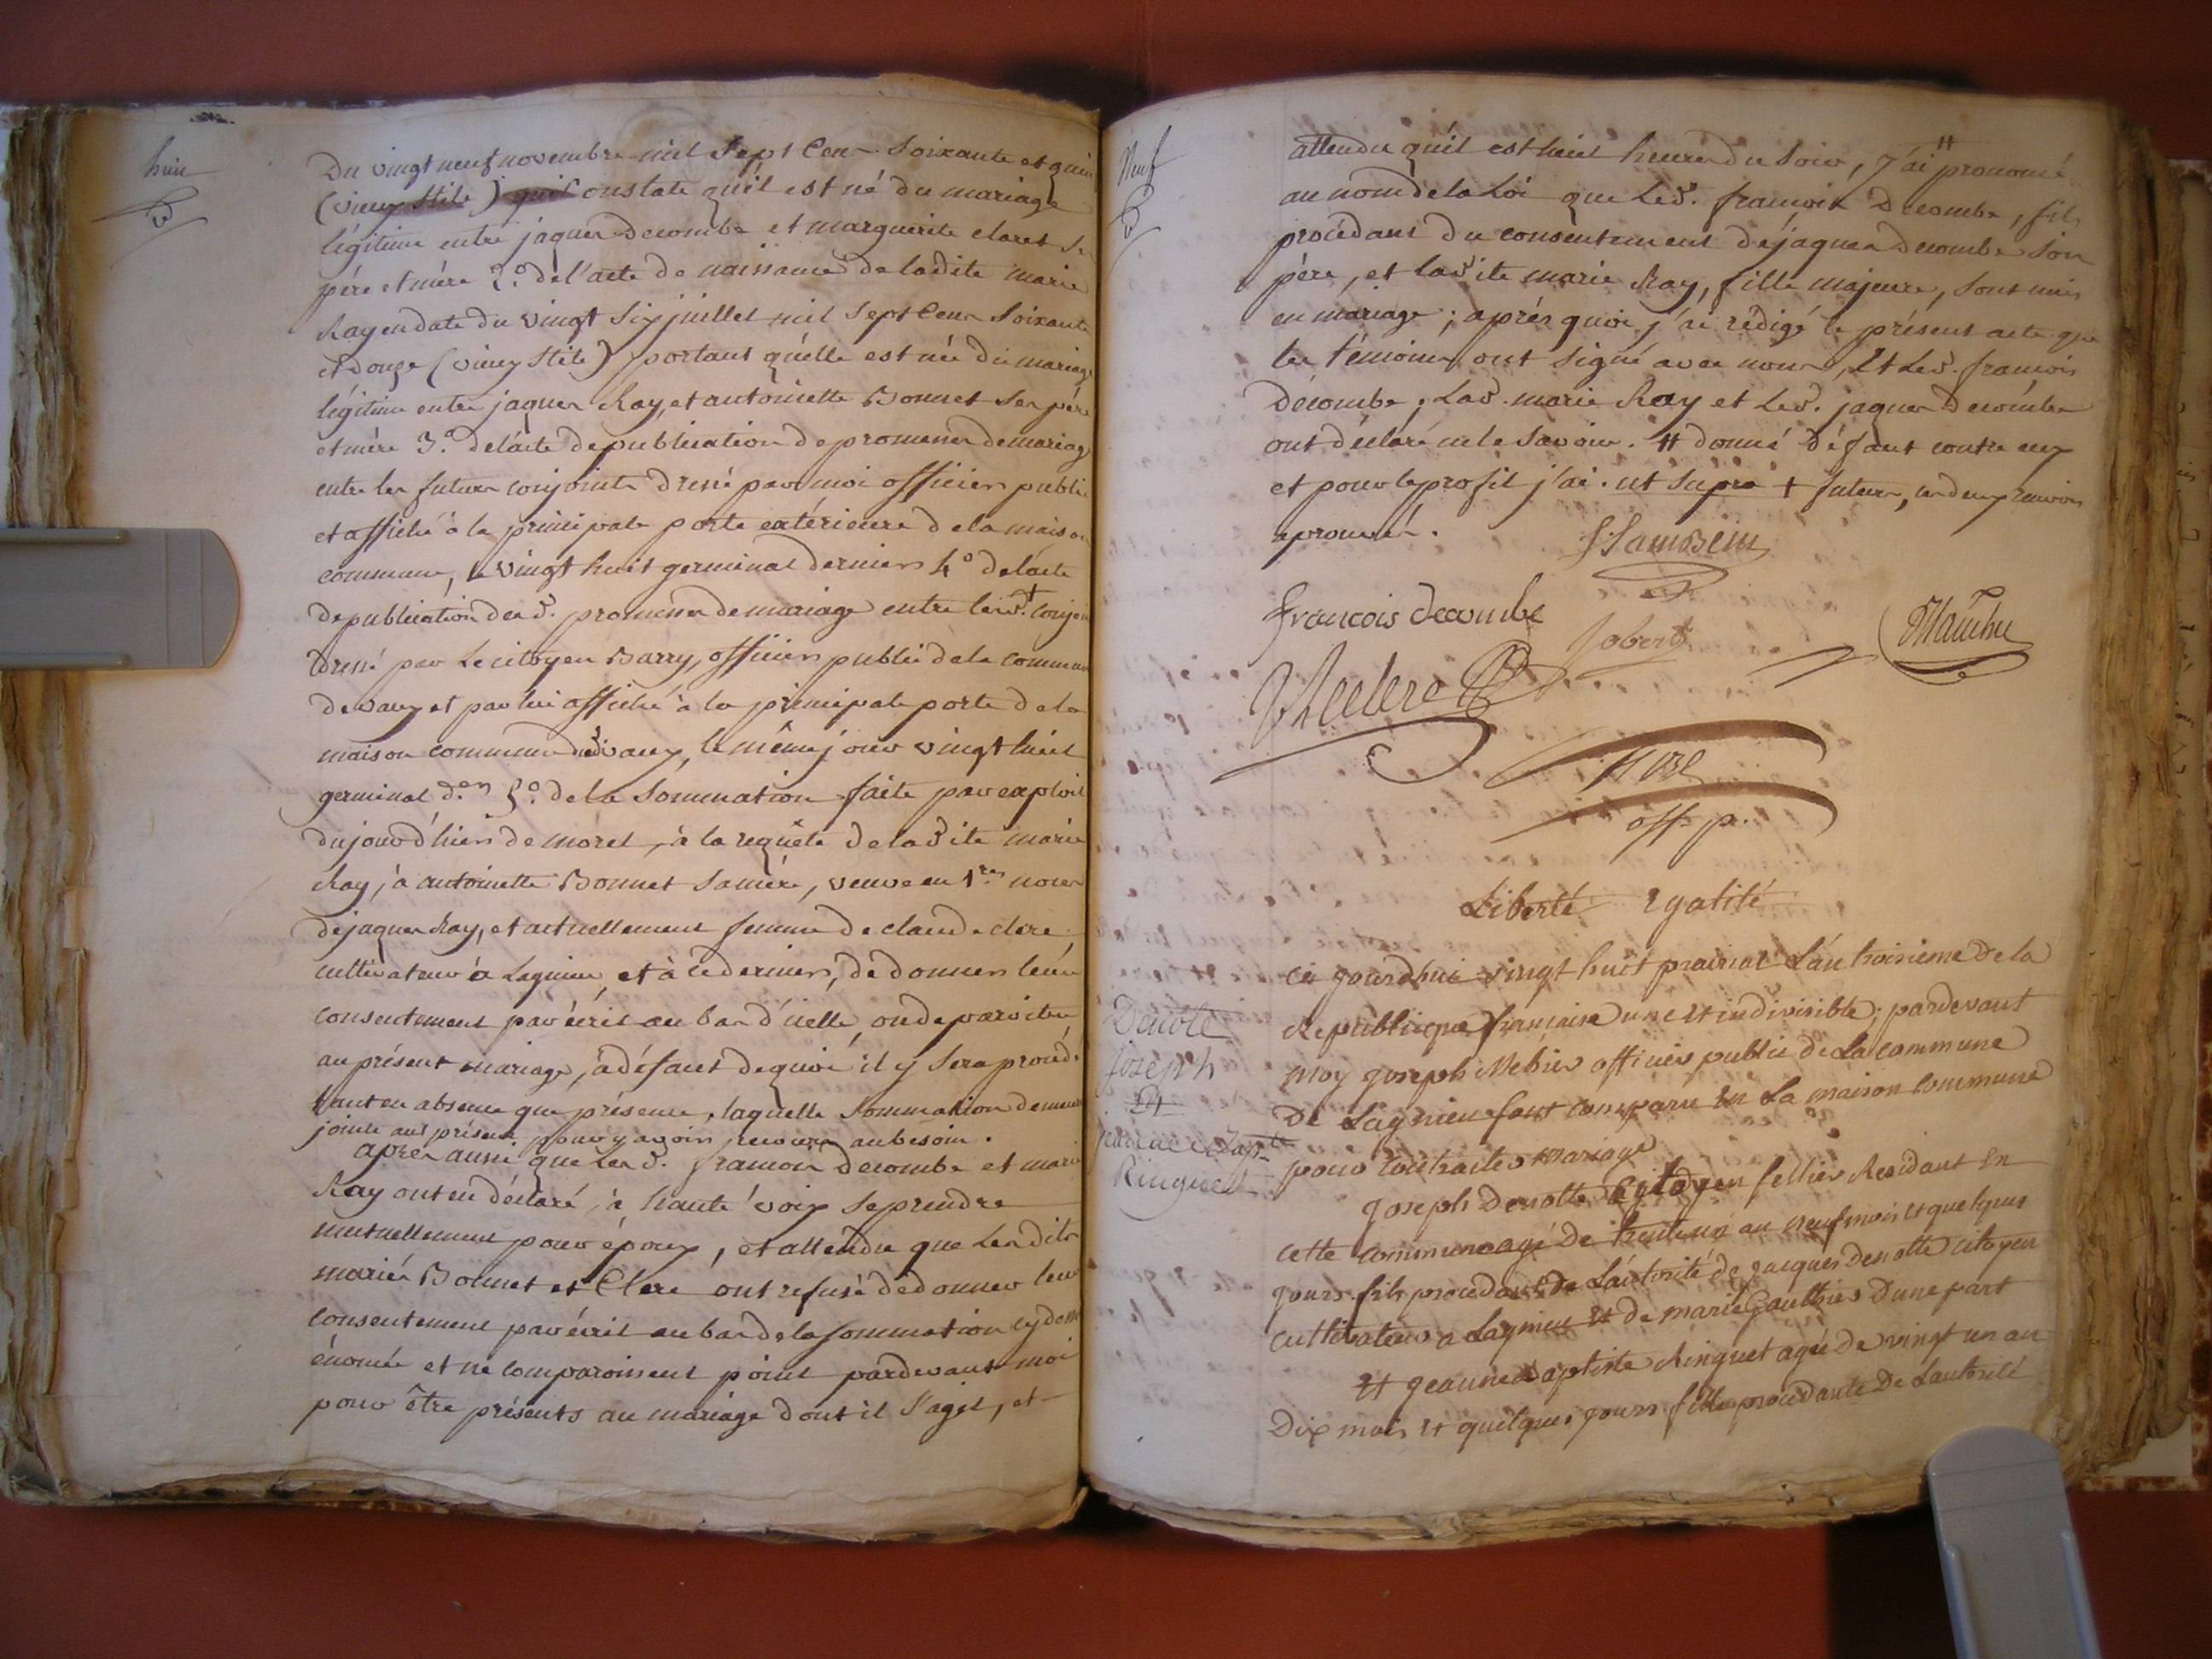 huit
Du vingt neuf novembre mil sept Cens Soixante et quin
(vieux Stile) constate qu'il est né du mariage
légitime entre jaques decombe et marguerite claret Se
père et mère 2.° de l'acte de naissance de ladite marie
Ray en date du vingt Six juillet mil Sept Cens Soixante
et douze (vieux Stile) portant qu'elle est née du mariage
légitime entre jaques Ray, et antoinette Bonnet Ses père
et mère 3.° de l'acte de publication de promesses de mariage
entre les futurs conjoints dressé par moi officier public
et affiché à la principale porte extérieure de la maison
commune, le vingt huit germinal dernier 4° de l'acte
de publication des d. promesses de mariage entre lesd. † conjoin
dressé par le citoyen Barry, officier public de la commune
de vaux et par lui affiché à la principale porte de la
maison commune dud. vaux, le même jour vingt huit
germinal d.er 5.° de la Sommation faite par exploit
du jour d'hier de morel, à la requête de la dite marie
Ray, à antoinette Bonnet Sa mère, veuve en 1.res noces
de jaques Ray, et actuellement femme de claude clere
cultivateur à Lagnieu, et à ce dernier, de donner leur
consentement par écrit au bas d'icelle, ou de paroitre
au présent mariage, à défaut de quoi il y Sera procédé
tant en absence que présence, laquelle Sommation demeure
jointe au présent pour y avoir recours au besoin.
après aussi que les d. francois decombe et marie
Ray ont eu déclaré, à haute voix Se prendre
mutuellement pour époux, et attendu que les dits
mariés Bonnet et Clere ont refusé de donner leur
consentement par écrit au bas de la sommation cy dess
énomée et ne comparoissent point pardevant moi
pour être présents au mariage dont il S'agit, et
Neuf
attendu qu'il est huit heures du Soir, j'ai # prononcé
au nom de la Loi que led. francois decombe, fils
procedant du consentement de jaques decombe Son
père, et la dite marie Ray, fille majeure, Sont unis
en mariage ; après quoi j'ai rédigé le présent acte que
les témoins ont signé avec nous, Et led. francois
décombe ; Lad. marie Ray et led. jaques decombe
ont déclaré ne le Savoir. # donné défaut contre eux
et pour le profit j'ai. ut Supra † futurs, ces deux renvois
aprouvés.
francois decombe
Jobert
Mauchu
Leclerc
off. p.
Liberté Egalité
Denolle
Joseph
Et
jeanne Bapte
Ringuet
ce jourdhui vingt huit prairial L'an troisieme de la
Republicque francaise une et indivisible ; pardevant
moy joseph officier public de La commune
De Lagnieu sont comparu en La maison commune
pour contracter mariage
joseph Denolle Citoyen sellier Residant En
cette commune agé de trente un an neuf mois et quelques
jours fils procedant de L'autorité de jacques Denolle citoyen
cultivateur a Lagnieu et de marie Gauthier dune part
Et jeanne Baptiste Ringuet agée de vingt un an
Dix mois et quelques jours fille procedante De Lautorité